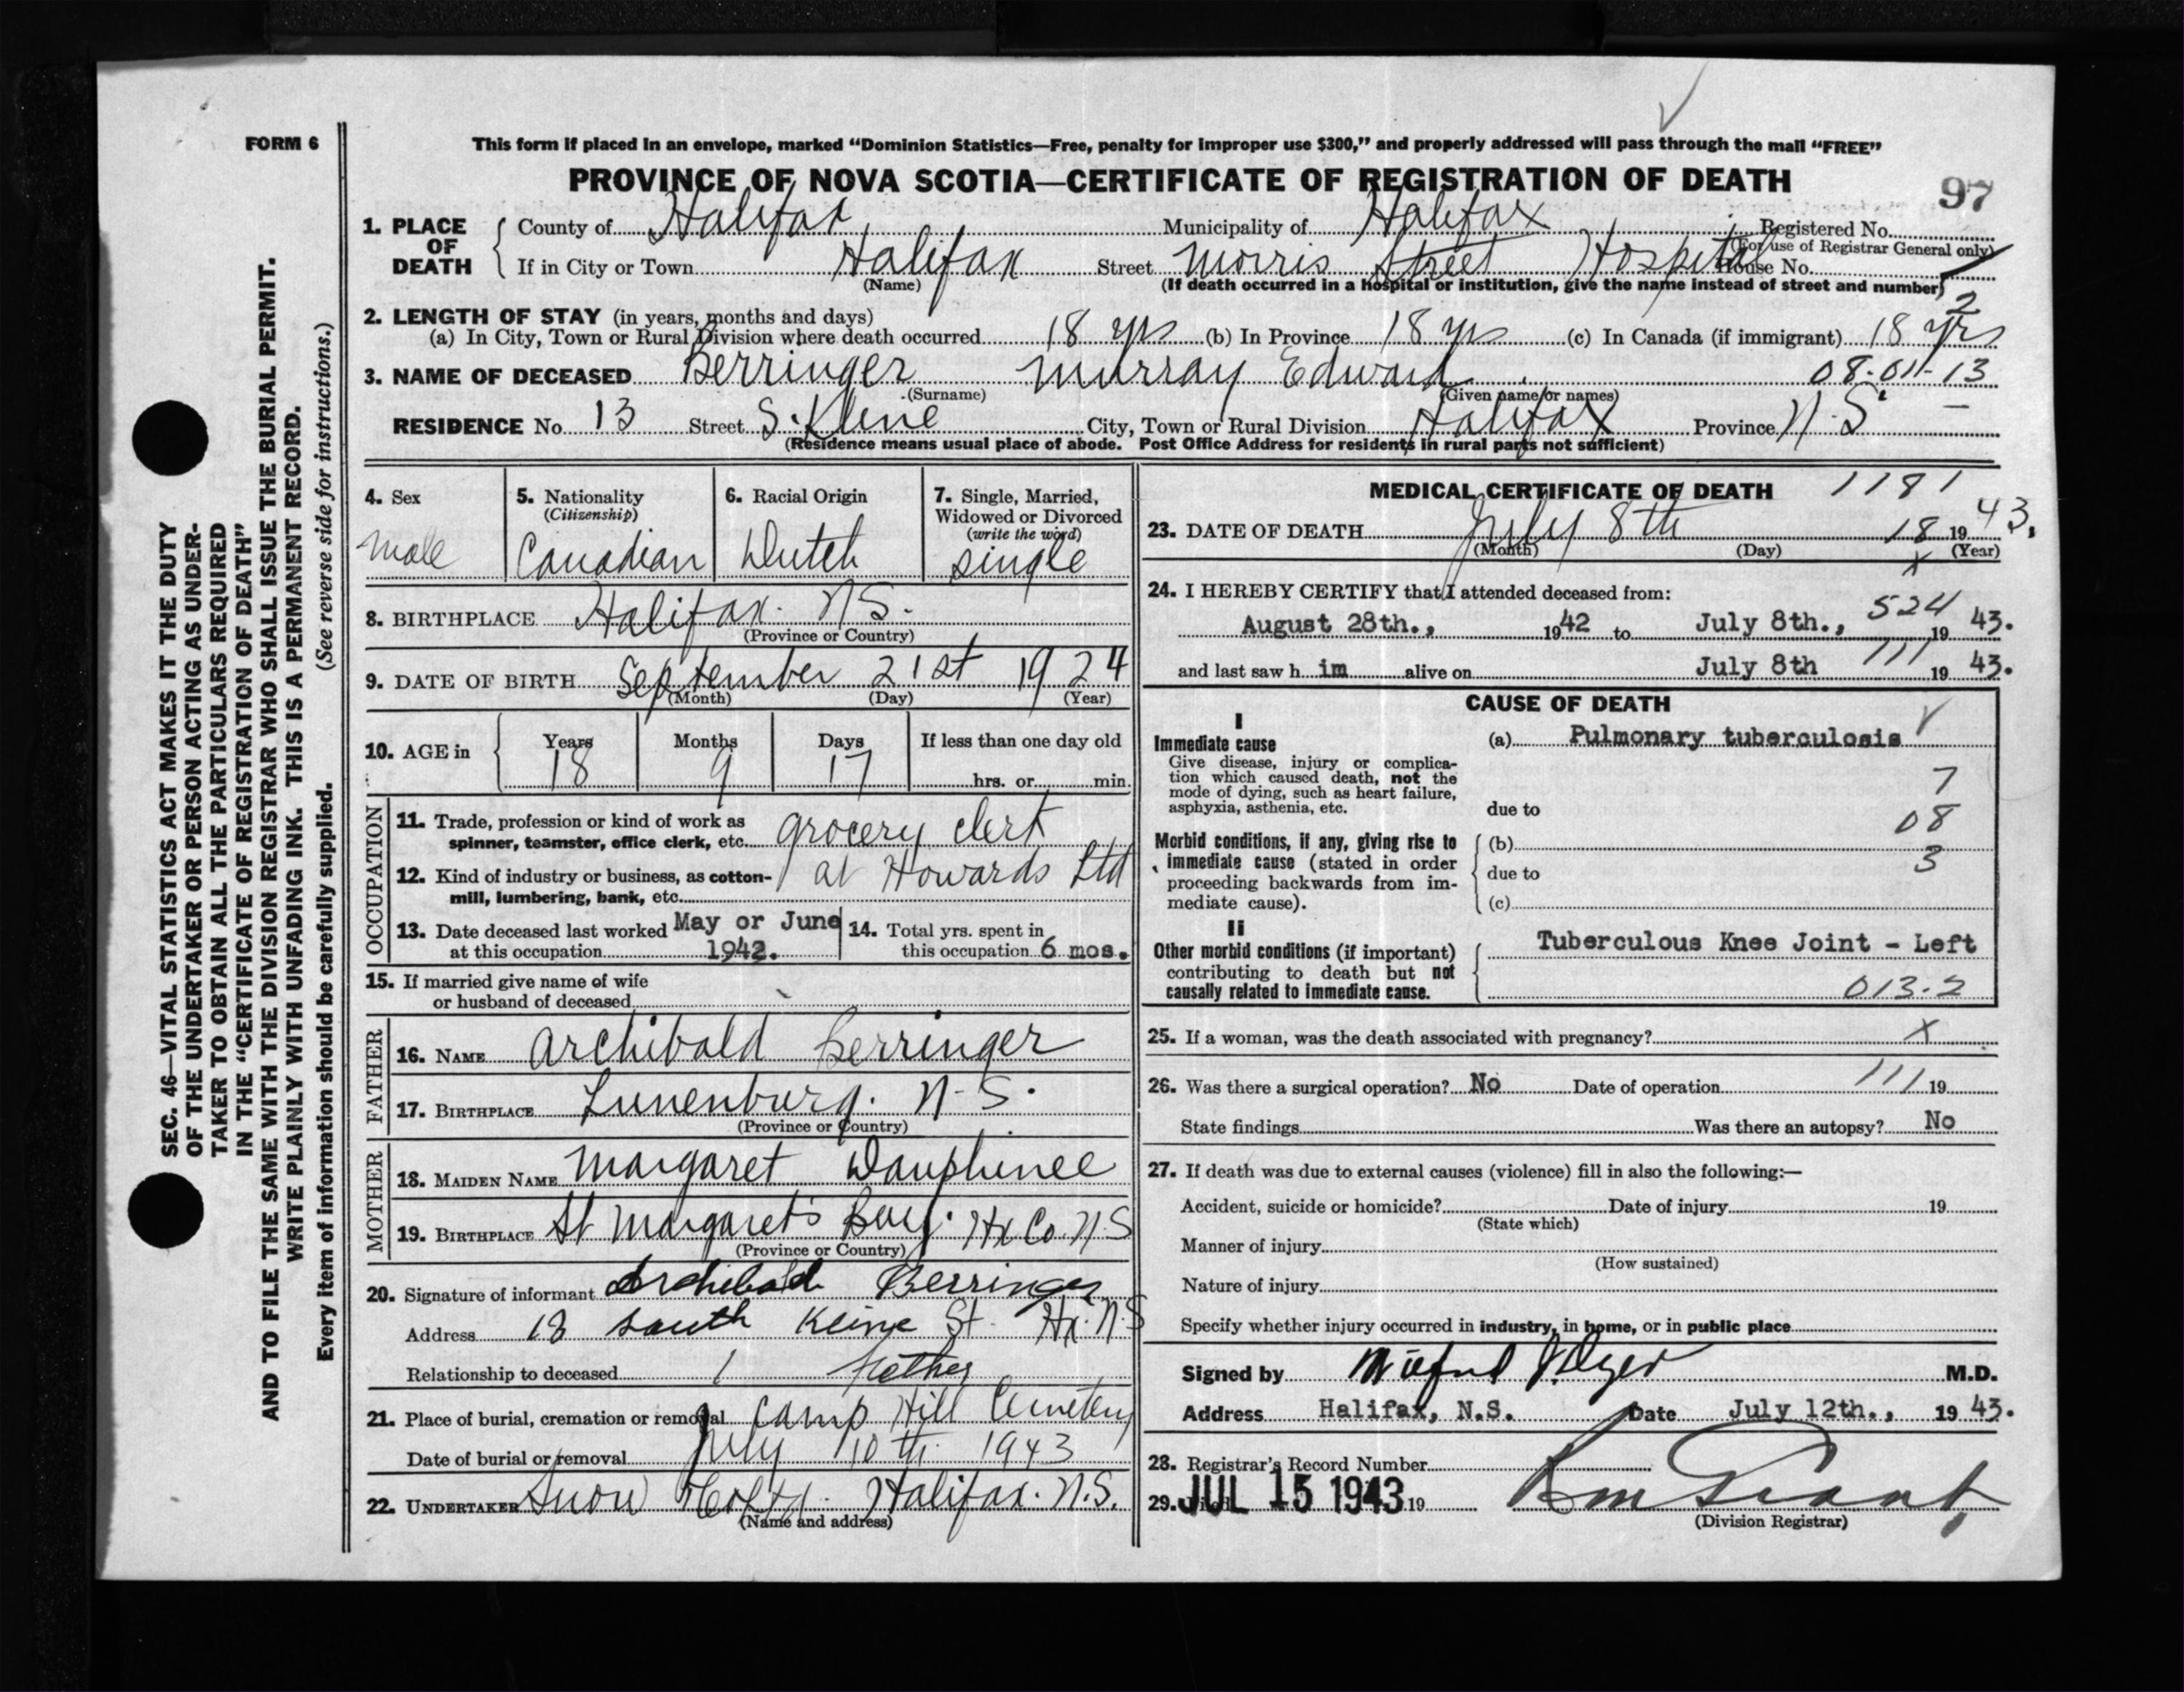 FORM 6
This form if placed in an envelope, marked “Dominion Statistics—Free, penalty for improper use $300,” and properly addressed will pass through the mail “FREE”
PROVINCE OF NOVA SCOTIA—CERTIFICATE OF REGISTRATION OF DEATH
97
1. PLACE OF DEATH County of Halifax Municipality of Halifax Registered No.
(For use of Registrar General only)
If in City or Town Halifax Street Morris Street Hospital House No.
(Name) (If death occurred in a hospital or institution, give the name instead of street and number)
2
2. LENGTH OF STAY (in years, months and days)
(a) In City, Town or Rural Division where death occurred 18 yrs (b) In Province 18 yrs (c) In Canada (if immigrant) 18 yrs
3. NAME OF DECEASED Berringer Murray Edward 08-011-13
(Surname) (Given name or names)
RESIDENCE No. 13 Street S. Kline City, Town or Rural Division Halifax Province N.S.
(Residence means usual place of abode. Post Office Address for residents in rural parts not sufficient)
4. Sex
male
5. Nationality
(Citizenship)
Canadian
6. Racial Origin
Dutch
7. Single, Married,
Widowed or Divorced
(write the word)
single
8. BIRTHPLACE Halifax. N.S.
(Province or Country)
9. DATE OF BIRTH September 21st 1924
(Month) (Day) (Year)
10. AGE in Years Months Days If less than one day old
18 9 17 hrs. or min.
OCCUPATION
11. Trade, profession or kind of work as
spinner, teamster, office clerk, etc. grocery clerk
12. Kind of industry or business, as cotton- at Howards Ltd
mill, lumbering, bank, etc.
13. Date deceased last worked May or June 14. Total yrs. spent in
at this occupation 1942. this occupation 6 mos.
15. If married give name of wife
or husband of deceased
FATHER
16. NAME Archibald Berringer
17. BIRTHPLACE Lunenburg. N.S.
(Province or Country)
MOTHER
18. MAIDEN NAME Margaret Dauphinee
19. BIRTHPLACE St Margaret's Bay. Hx. Co. N.S
(Province or Country)
20. Signature of informant Archibald Berringer
Address 13 South Kline St. Hx. N.S
Relationship to deceased father
21. Place of burial, cremation or removal Camp Hill Cemetery
Date of burial or removal July 10th. 1943
22. UNDERTAKER Snow Co Ltd. Halifax. N.S.
(Name and address)
MEDICAL CERTIFICATE OF DEATH 1181
23. DATE OF DEATH July 8th 18 1943.
(Month) (Day) (Year)
x
24. I HEREBY CERTIFY that I attended deceased from:
524
August 28th., 1942 to July 8th., 1943.
and last saw h im alive on July 8th 111 1943.
CAUSE OF DEATH
I
Immediate cause
Give disease, injury or complica-
tion which caused death, not the
mode of dying, such as heart failure,
asphyxia, asthenia, etc.
(a) Pulmonary tuberculosis
7
due to
08
Morbid conditions, if any, giving rise to
immediate cause (stated in order
proceeding backwards from im-
mediate cause).
(b)
3
due to
(c)
II
Other morbid conditions (if important)
contributing to death but not
causally related to immediate cause.
Tuberculous Knee Joint - Left
013-2
25. If a woman, was the death associated with pregnancy? x
26. Was there a surgical operation? No Date of operation 111 19
State findings Was there an autopsy? No
27. If death was due to external causes (violence) fill in also the following:—
Accident, suicide or homicide? Date of injury 19
(State which)
Manner of injury
(How sustained)
Nature of injury
Specify whether injury occurred in industry, in home, or in public place
Signed by M.D.
Address Halifax, N.S. Date July 12th., 1943.
28. Registrar's Record Number
29. Filed JUL 15 1943 19
(Division Registrar)
SEC. 46—VITAL STATISTICS ACT MAKES IT THE DUTY
OF THE UNDERTAKER OR PERSON ACTING AS UNDER-
TAKER TO OBTAIN ALL THE PARTICULARS REQUIRED
IN THE “CERTIFICATE OF REGISTRATION OF DEATH”
AND TO FILE THE SAME WITH THE DIVISION REGISTRAR WHO SHALL ISSUE THE BURIAL PERMIT.
WRITE PLAINLY WITH UNFADING INK. THIS IS A PERMANENT RECORD.
Every item of information should be carefully supplied. (See reverse side for instructions.)